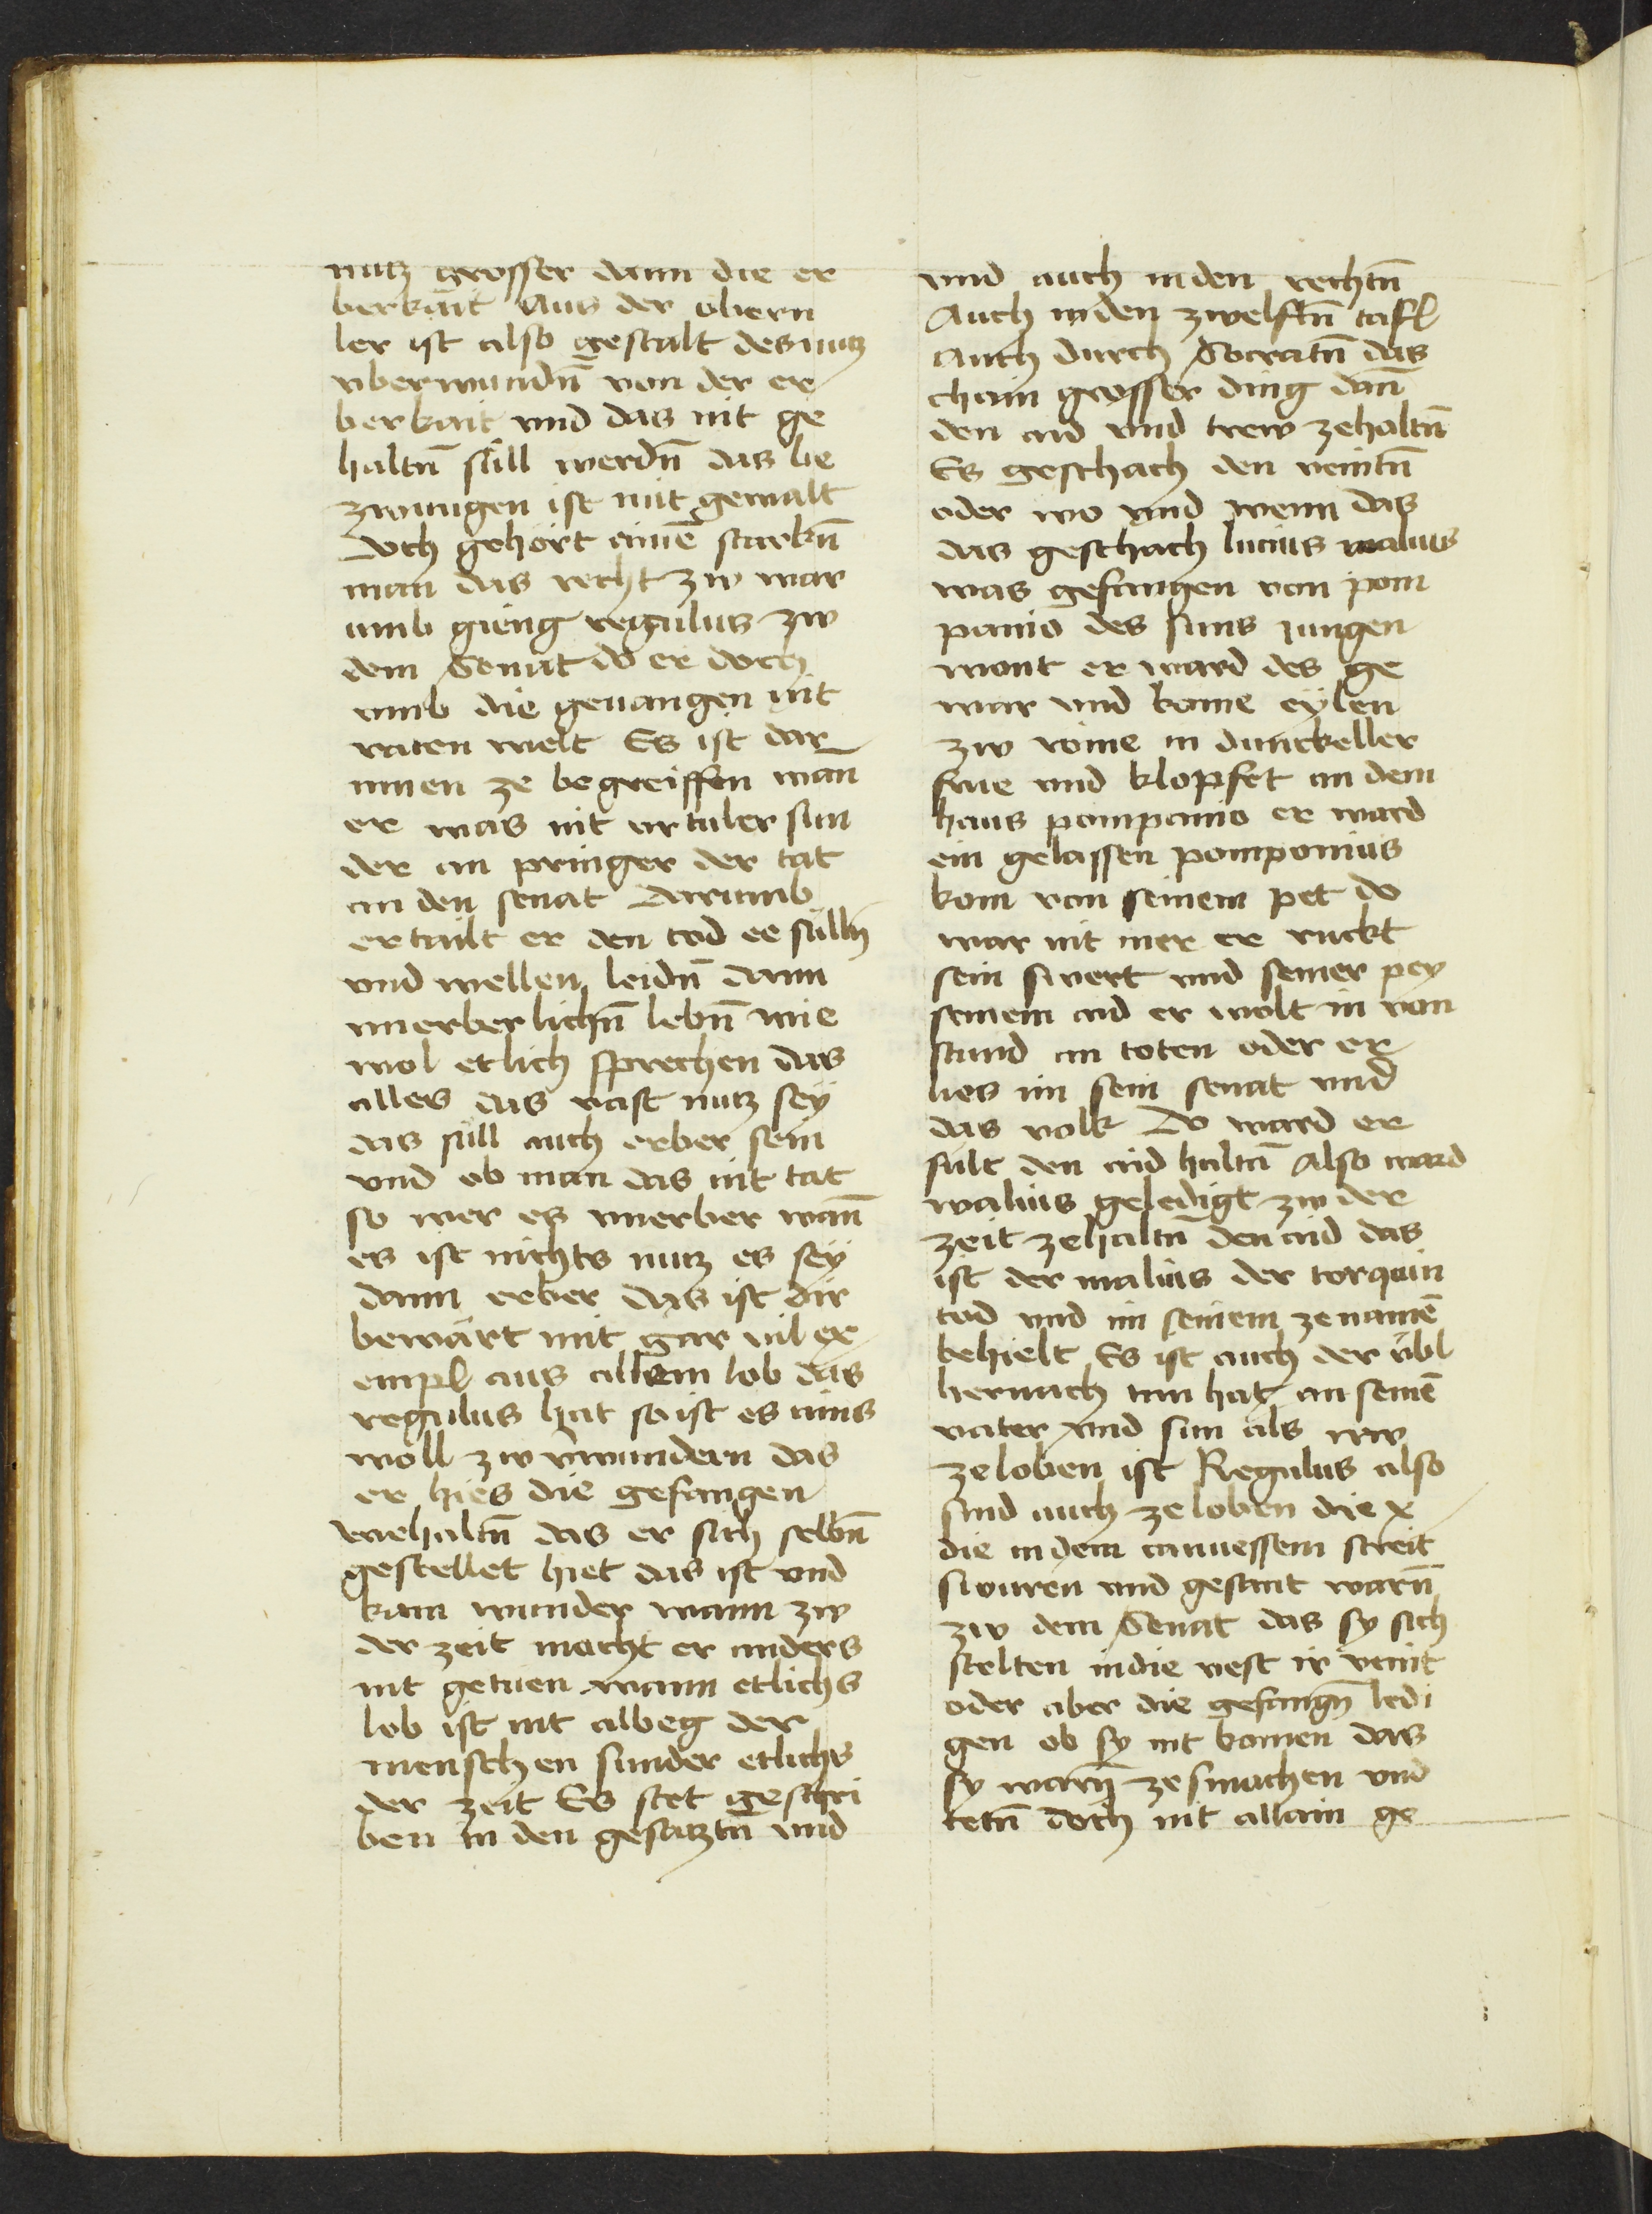 nutz grosser dann die er
berkait Aus der obern
ler ist also gestalt des nutz
vberwundn̄ von der er
berkait vnd das nit ge
haltn̄ sull werdn̄ das be
zwungen ist mit gewalt
doch gehört ainē starkn̄
man das recht zw war
umb gieng regulus zw
dem Senat do er doch
vmb die geuangen nit
raten welt Es ist dar
innen ze begreiffen wan̄
er was nit urtailer sun
der an pringer der tat
an den senat Darumb
ertailt er den tod ee sulln̄
vnd wellen leidn̄ dann
vnerberlichn̄ lebn̄ wie
wol etlich sprechen das
alles das vast nutz seÿ
das sull auch erber sein
vnd ob man das nit tat
so wer es vnerber wan̄
es ist nichts nutz es seÿ
dann erber das ist dir
bewärt mit gar vil ex
empl aus allem lob das
regulus hat so ist es ains
woll zw v̄wundern das
er hies die gefangen
vnehaltn̄ das er sich selbn̄
gestellet hiet das ist vnd
kain wunder wann zw
der zeit macht er anders
nit getuen wann etlichs
lob ist nit albeg der
menschen sunder etlichs
der zeit Es stet geschri
ben in den gesatztn̄ vnd
vnd auch in den rechtn̄
Auch in den zwelftn̄ tafl
Auch durch Socratn̄ das
chain grosser ding dan̄
den aid vnd trew zehaltn̄
Es geschach den veintn̄
oder wo vnd wenn das
das geschach lucius malius
was gefangen von pom
panio des suns jungen
mont er ward des ge
war vnd kome eÿlen
zw rome in dunckeller
frue vnd klopfet an dem
haus pompanio er ward
ein gelassen pomponius
kom von seinem pet do
war nit mer er ruckt
sein swert vnd semer pey
seinem aid er wolt in von
stund an toten oder er
lies im sein senat vnd
das volk Do ward er
sult den aid haltn̄ Also ward
walius geledigt zw der
zeit zehaltn̄ den aid das
ist der malius der torquin
tod vnd im seinem zenamē
behielt Es ist auch der übl
hernach tun hat an seinē
vater vnd sun als nw
zeloben ist Regulus also
sind auch zeloben die x
die in dem canuessem streit
swuren vnd gesant warn̄
zw dem Senat das sy sich
stelten in die vest ir veint
oder aber die gefangn̄ ledi
gen ob sy nit komen das
sy warn̄ ze smachen vnd
tetn̄ doch nit allain ge